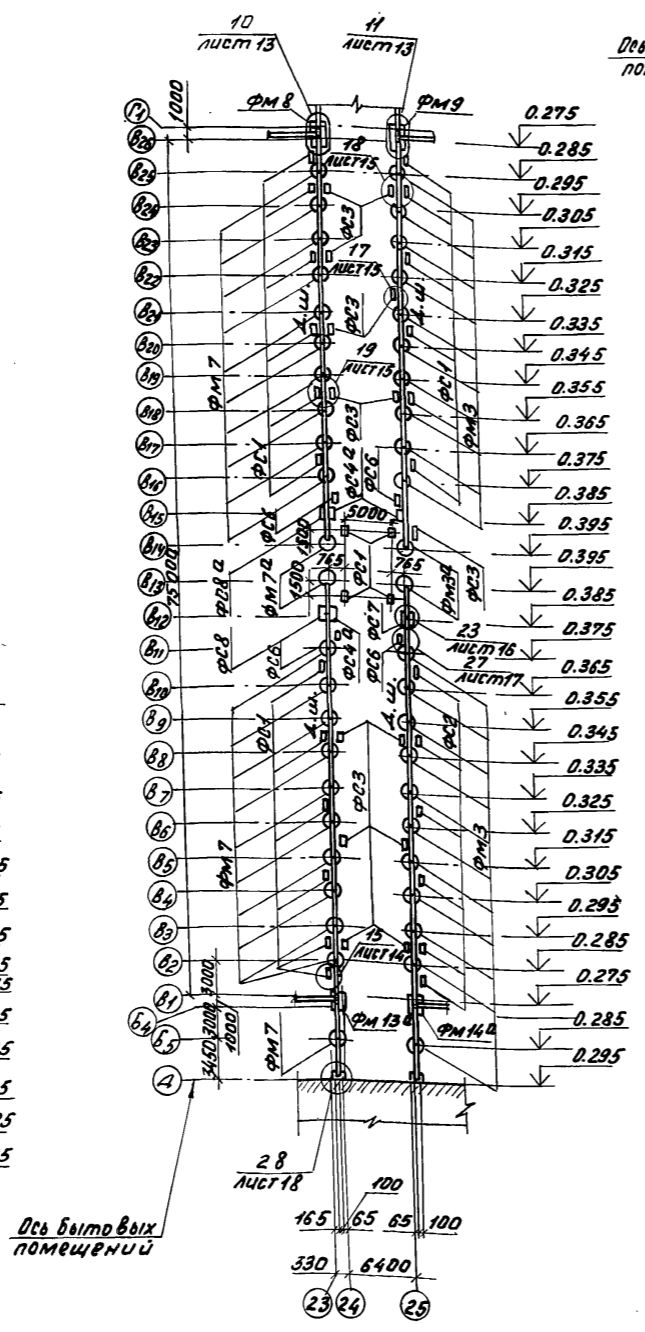 10
лист 13
11
лист 13
Ось
ФМ8
ФМ9
1000
Г1
В26
В25
В24
В23
В22
В21
В20
В19
В18
В17
В16
В15
В14
В13
В12
В11
В10
В9
В8
В7
В6
В5
В4
В3
В2
В1
Б4
Б5
А
75000
18
лист 15
17
лист 15
19
лист 15
ФС3
ФС3
ФС3
Д.Ш.
Д.Ш.
ФМ7
ФС1
ФС1
ФМ3
ФС4а
ФС6
ФС6
5000
1500
1500
765
765
ФС1
ФС8а
ФМ7а
ФМ3а
ФС3
ФС8
ФС6
ФС4а
ФС7
ФС6
23
лист 16
27
лист 17
Д.Ш.
Д.Ш.
ФС1
ФС2
ФС3
ФМ7
ФМ3
15
лист 14
ФМ13а
ФМ14а
ФМ7
3000
3000
1000
3450
28
лист 18
0.275
0.285
0.295
0.305
0.315
0.325
0.335
0.345
0.355
0.365
0.375
0.385
0.395
0.395
0.385
0.375
0.365
0.355
0.345
0.335
0.325
0.315
0.305
0.295
0.285
0.275
0.285
0.295
Ось бытовых
помещений
100
165
65
65
100
330
6400
23
24
25